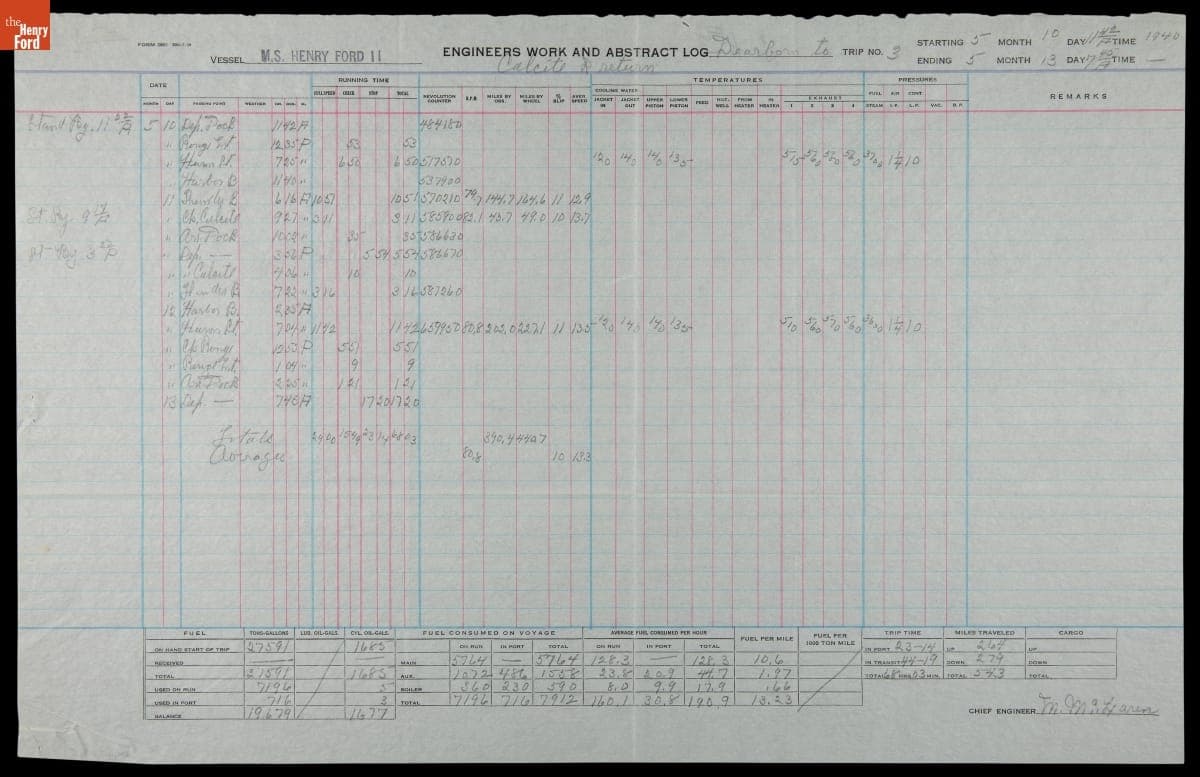 the Henry Ford
ENGINEERS WORK AND ABSTRACT LOG Dearborn to TRIP NO. 3 STARTING 5 MONTH 10 DAY TIME 1940
VESSEL M.S. HENRY FORD II Calcite & return ENDING 5 MONTH 13 DAY TIME —
DATE RUNNING TIME TEMPERATURES PRESSURES
COOLING WATER
FULL SPEED CHECK STOP TOTAL REVOLUTION COUNTER R.P.M. MILES BY OBS. MILES BY WHEEL % SLIP AVER SPEED JACKET IN JACKET OUT UPPER PISTON LOWER PISTON FEED HOT-WELL FROM HEATER IN HEATER EXHAUST 1 2 3 4 FUEL AIR CONT. REMARKS
MONTH DAY PASSING POINT WEATHER STEAM I.P. L.P. VAC. B.P.
5 10 Dep. Dock 1142 A 484180
" 1235 P 53 53
" Huron Lt. 725 " 650 650 517570 120 140 140 135 515 560 530 560
" Harbor B 1140 " 537900
11 616 A 1051 1051 570210 79.7 144.7 164.6 11 12.9
" Ck. Calcite 927 " 311 311 585900 82.1 43.7 49.0 10 13.7
" Arr. Dock 1002 " 35 35 586630
" Dep. — 356 P 554 554 586670
" " Calcite 406 " 10 10
" Thunder B 722 " 316 316
12 Harbor B. 235 A
" Huron Lt. 704 " 1142 1142 659950 80.8 202.0 227.1 11 13.5 120 140 140 135 510 560 570 560
" Ck. Rouge 1255 P 551 551
" 104 " 9 9
" Arr. Dock 225 " 121 121
13 Dep. — 745 A 1720 1720
Totals 2900 6803 390.4 440.7
Averages 80.8 10 13.3
FUEL TONS-GALLONS LUB. OIL-GALS. CYL. OIL-GALS. FUEL CONSUMED ON VOYAGE AVERAGE FUEL CONSUMED PER HOUR FUEL PER MILE FUEL PER 1000 TON MILE TRIP TIME MILES TRAVELED CARGO
ON RUN IN PORT TOTAL ON RUN IN PORT TOTAL
ON HAND START OF TRIP 27591 1685 IN PORT 23-14 UP 264 UP
RECEIVED — — MAIN 5764 — 5764 128.3 — 128.3 10.6 IN TRANSIT 44-19 DOWN 279 DOWN
TOTAL 27591 1685 AUX. 1072 486 1558 23.8 20.9 44.7 1.97 TOTAL HRS. MIN. TOTAL 543 TOTAL
USED ON RUN 7196 5 BOILER 360 230 590 8.0 9.9 17.9 .66
USED IN PORT 716 3 TOTAL 7196 716 7912 160.1 30.8 190.9 13.23
BALANCE 19679 1677
CHIEF ENGINEER M. McLaren